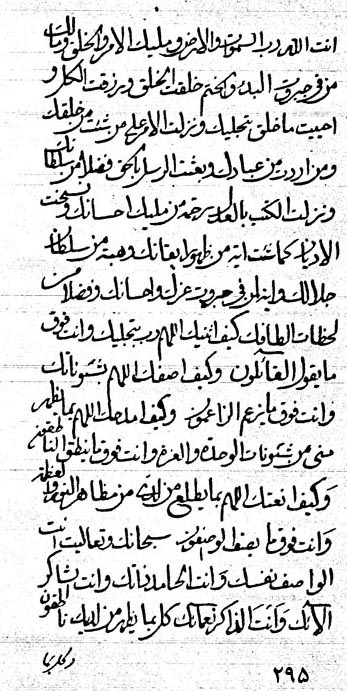 انت الله رب السموات والارض ومليك الامر والخلق ومالك
من في جبروت البدء والختم خلقت الخلق ورزقت الكل و
احييت ما خلق بتجليك ونزلت الامر على من شئت من خلقك
ومن اردت من عبادك وبعثت الرسل بالحق فضلا من سلطانك
ونزلت الكتب بالعدل رحمة من مليك احسانك ونسخت
الاديان كما شئت اية من ظهور ايقانك وهبة من سلطان
جلالك واية لمن في جبروت عزك واحسانك وفضلا من
لحظات الطافك كيف اثنيك اللهم رب بتجليك وانت فوق
ما يقول القائلون وكيف اصفك اللهم بشئوناتك
وانت فوق ما يزعم الزاعمون وكيف امدحك اللهم بما يظهر
مني من شئونات الوحدة والعزة وانت فوق ما ينطق الناطقون
وكيف انعتك اللهم بما يطلع من لدنك من مظاهر
وانت فوق ما يصف الواصفون سبحانك وتعاليت انت
الواصف نفسك وانت الحامد ذاتك وانت شاكر
الائك وانت الذاكر نعمائك كل بما يظهر من لديك ناطقون
وكل بما
٢٩٥